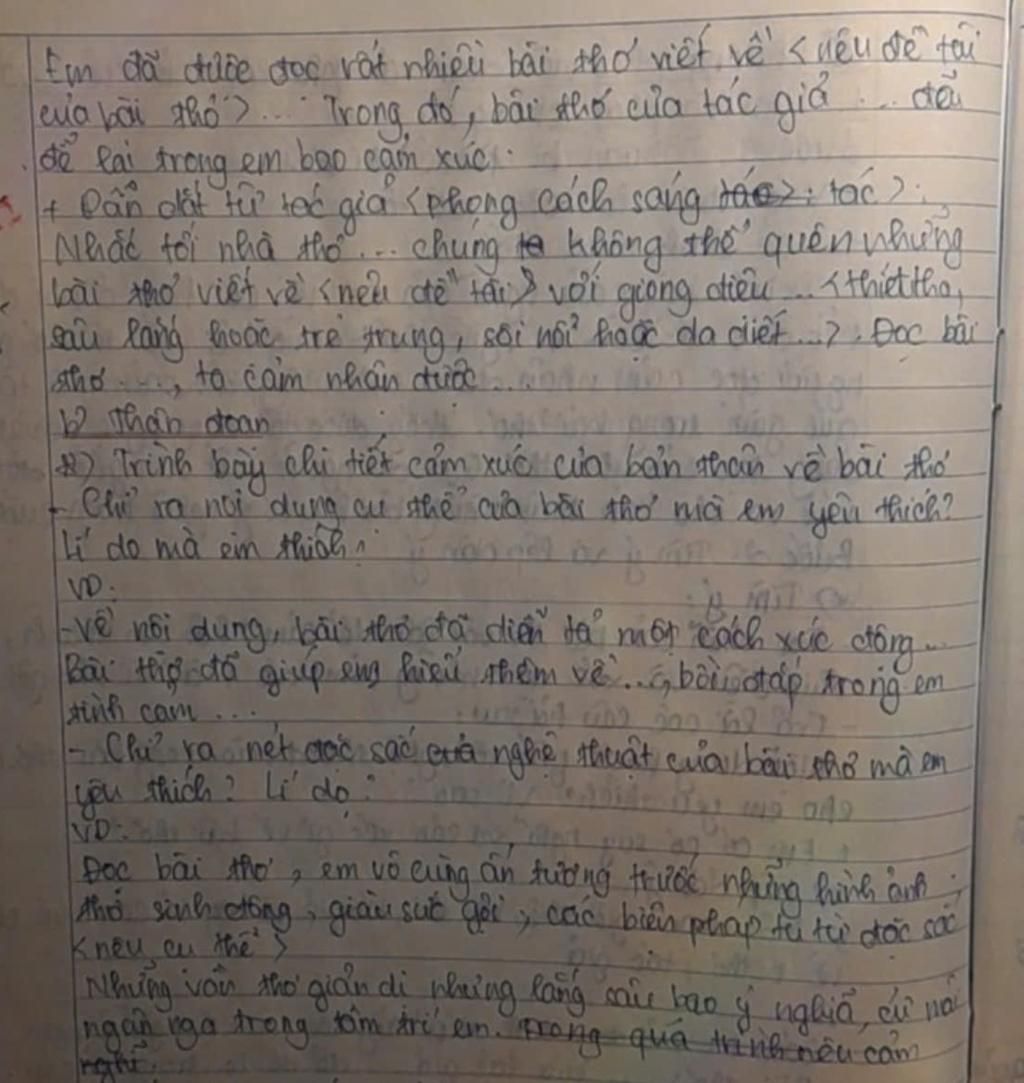 Em đã được đọc rất nhiều bài thơ viết về <nêu đề tài
của bài thơ>... Trong đó, bài thơ của tác giả ... đã
để lại trong em bao cảm xúc.
+ Dẫn dắt từ tác giả <phong cách sáng tác>: tác>:
Nhắc tới nhà thơ... chúng ta không thể quên những
bài thơ viết về <nêu đề tài> với giọng điệu ... <thiết tha,
sâu lắng hoặc trẻ trung, sôi nổi hoặc da diết...>. Đọc bài
thơ ..., ta cảm nhận được...
b) Thân đoạn
*) Trình bày chi tiết cảm xúc của bản thân về bài thơ
- Chỉ ra nội dung cụ thể của bài thơ mà em yêu thích?
Lí do mà em thích?
VD:
- Về nội dung, bài thơ đã diễn tả một cách xúc động...
Bài thơ đã giúp em hiểu thêm về..., bồi đắp trong em
tình cảm ...
- Chỉ ra nét đặc sắc của nghệ thuật của bài thơ mà em
yêu thích? Lí do?
VD:
Đọc bài thơ, em vô cùng ấn tượng trước những hình ảnh
thơ sinh động, giàu sức gợi, các biện pháp tu từ đặc sắc
<nêu cụ thể>
Những vần thơ giản dị nhưng lắng sâu bao ý nghĩa, cứ mãi
ngân nga trong tâm trí em. Trong quá trình nêu cảm
nghĩ.